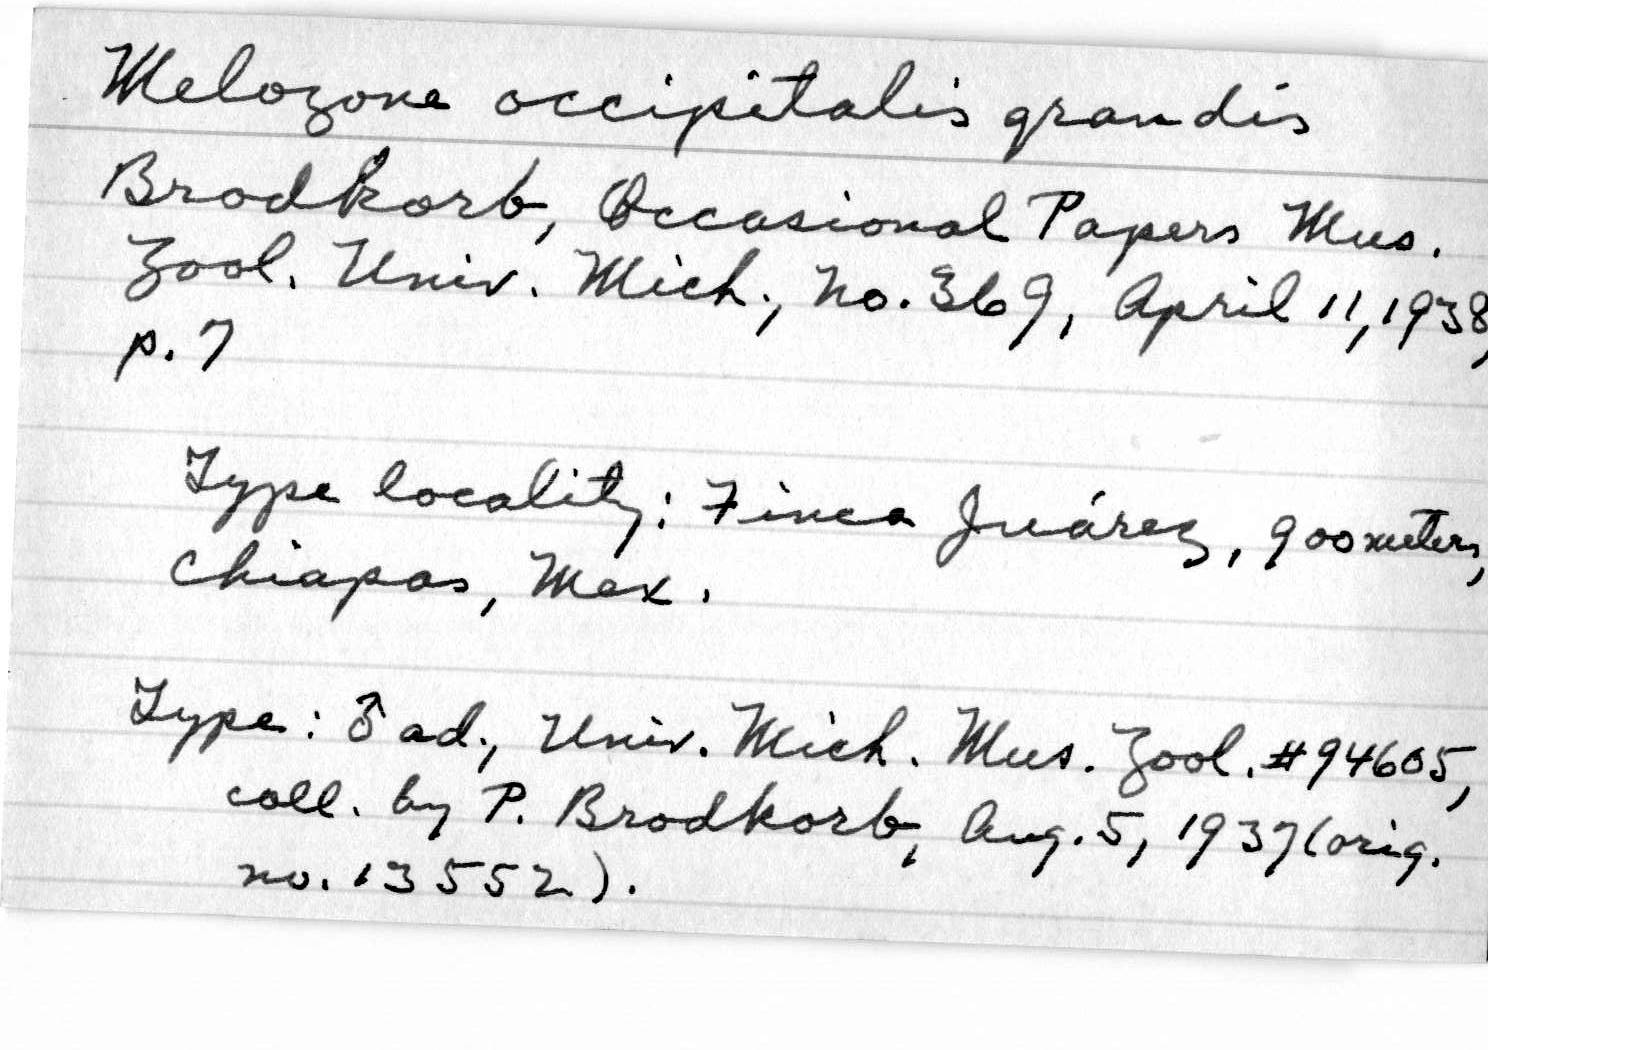 Melozone occipitalis grandis
Brodkorb, Occasional Papers Mus.
Zool. Univ. Mich., No. 369, April 11, 1938,
p. 7
Type locality: Finca Juárez, 900 meters,
Chiapas, Mex.
Type: ♂ ad., Univ. Mich. Mus. Zool. #94605,
coll. by P. Brodkorb, Aug. 5, 1937 (orig.
no. 13552).